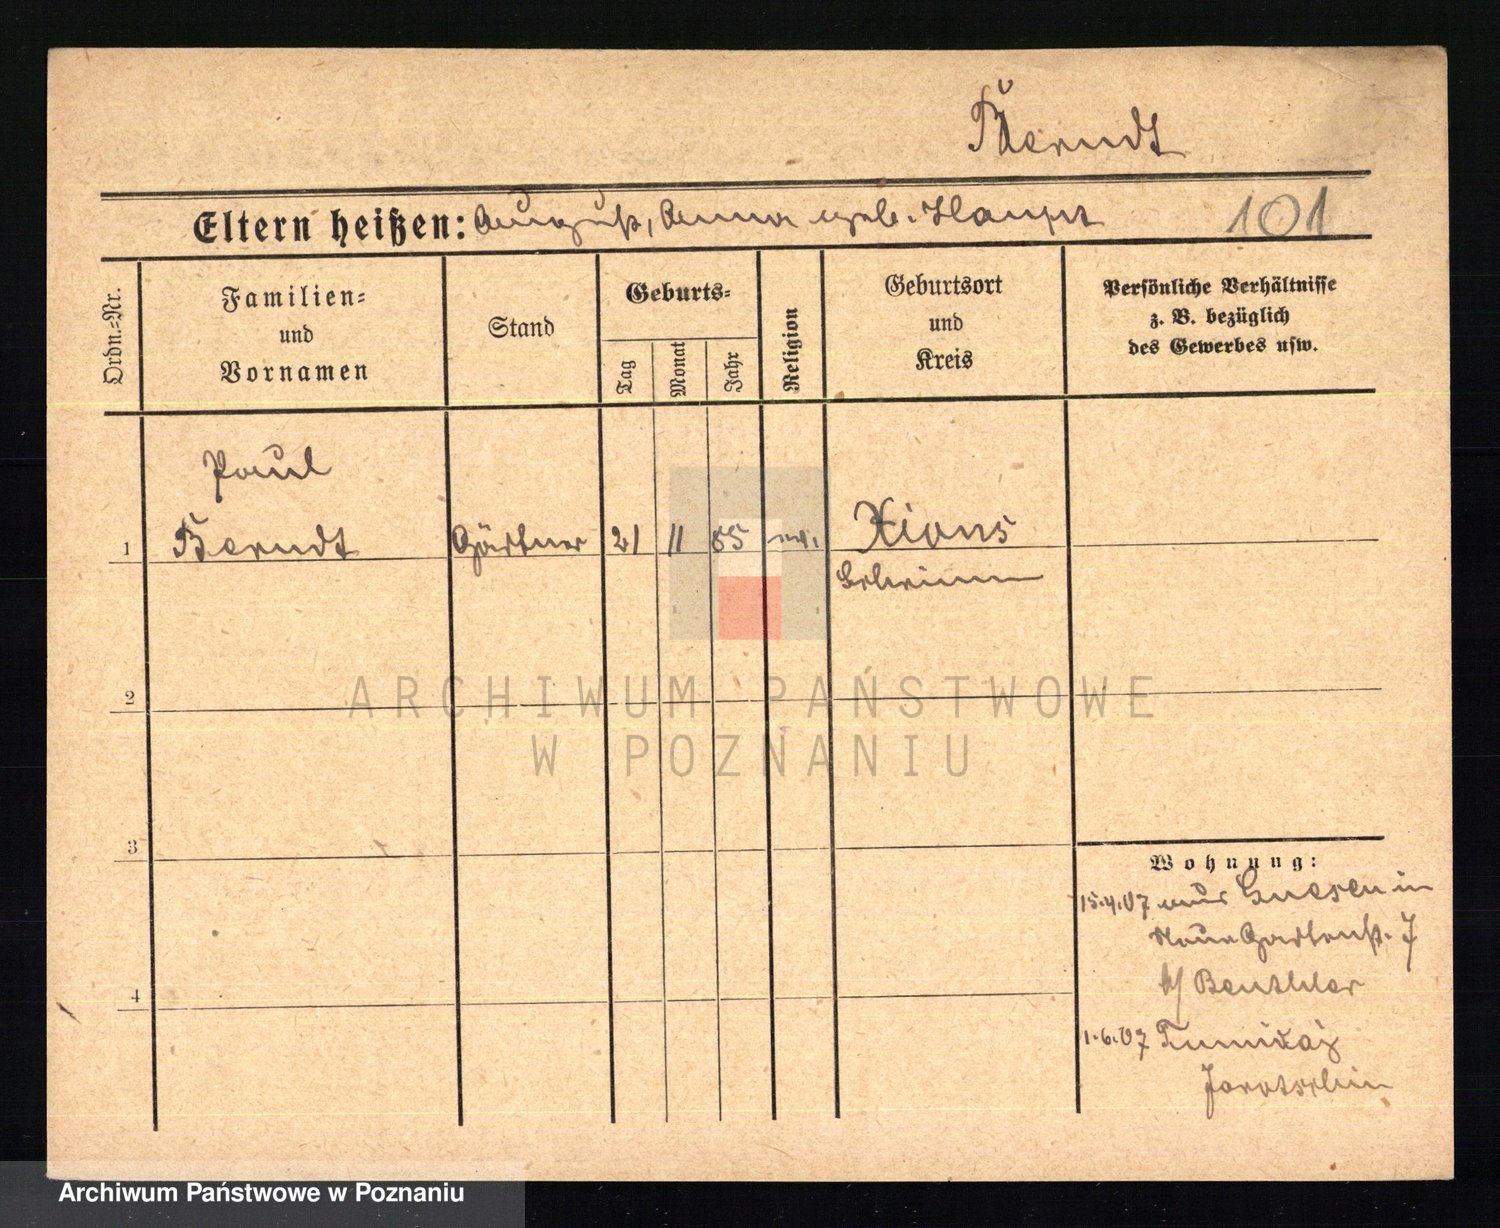 Berndt
Eltern heißen: August, Anna geb. Haupt 101
Ordn.-Nr.
Familien-
und
Vornamen
Stand
Geburts-
Tag
Monat
Jahr
Religion
Geburtsort
und
Kreis
Persönliche Verhältnisse
z. B. bezüglich
des Gewerbes usw.
Paul
1 Berndt Gärtner 21 11 85 ev. Xions
Schrimm
2
ARCHIWUM PAŃSTWOWE
W POZNANIU
3
Wohnung:
15.4.07 aus Gnesen in
Neue Gartenstr. 7
b/ Beuthler
1.6.07
Jarotschin
4
Archiwum Państwowe w Poznaniu